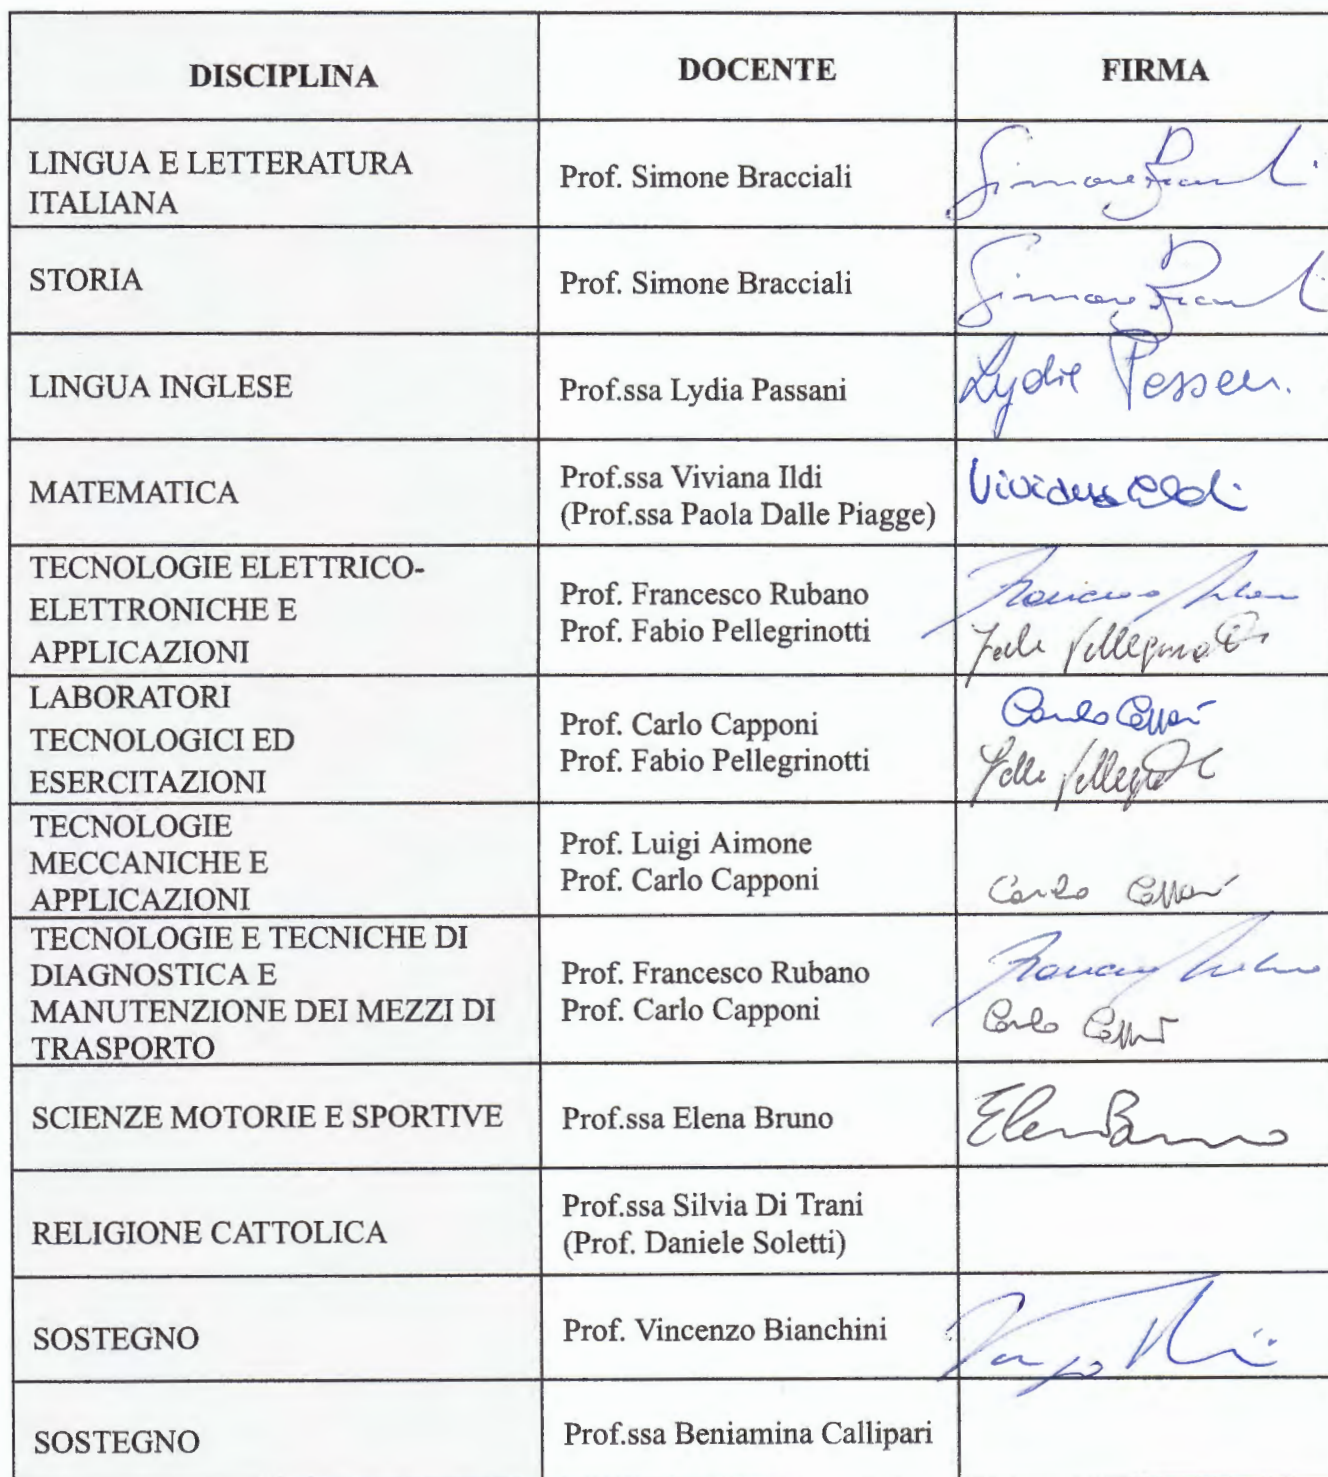 DISCIPLINA DOCENTE FIRMA
LINGUA E LETTERATURA
ITALIANA
Prof. Simone Bracciali
Simone
STORIA
Prof. Simone Bracciali
Simone
LINGUA INGLESE
Prof.ssa Lydia Passani
Lydia
MATEMATICA
Prof.ssa Viviana Ildi
(Prof.ssa Paola Dalle Piagge)
Viviana Ildi
TECNOLOGIE ELETTRICO-
ELETTRONICHE E
APPLICAZIONI
Prof. Francesco Rubano
Prof. Fabio Pellegrinotti
LABORATORI
TECNOLOGICI ED
ESERCITAZIONI
Prof. Carlo Capponi
Prof. Fabio Pellegrinotti
Carlo
TECNOLOGIE
MECCANICHE E
APPLICAZIONI
Prof. Luigi Aimone
Prof. Carlo Capponi
Carlo
TECNOLOGIE E TECNICHE DI
DIAGNOSTICA E
MANUTENZIONE DEI MEZZI DI
TRASPORTO
Prof. Francesco Rubano
Prof. Carlo Capponi
Carlo
SCIENZE MOTORIE E SPORTIVE
Prof.ssa Elena Bruno
Elena Bruno
RELIGIONE CATTOLICA
Prof.ssa Silvia Di Trani
(Prof. Daniele Soletti)
SOSTEGNO
Prof. Vincenzo Bianchini
SOSTEGNO
Prof.ssa Beniamina Callipari